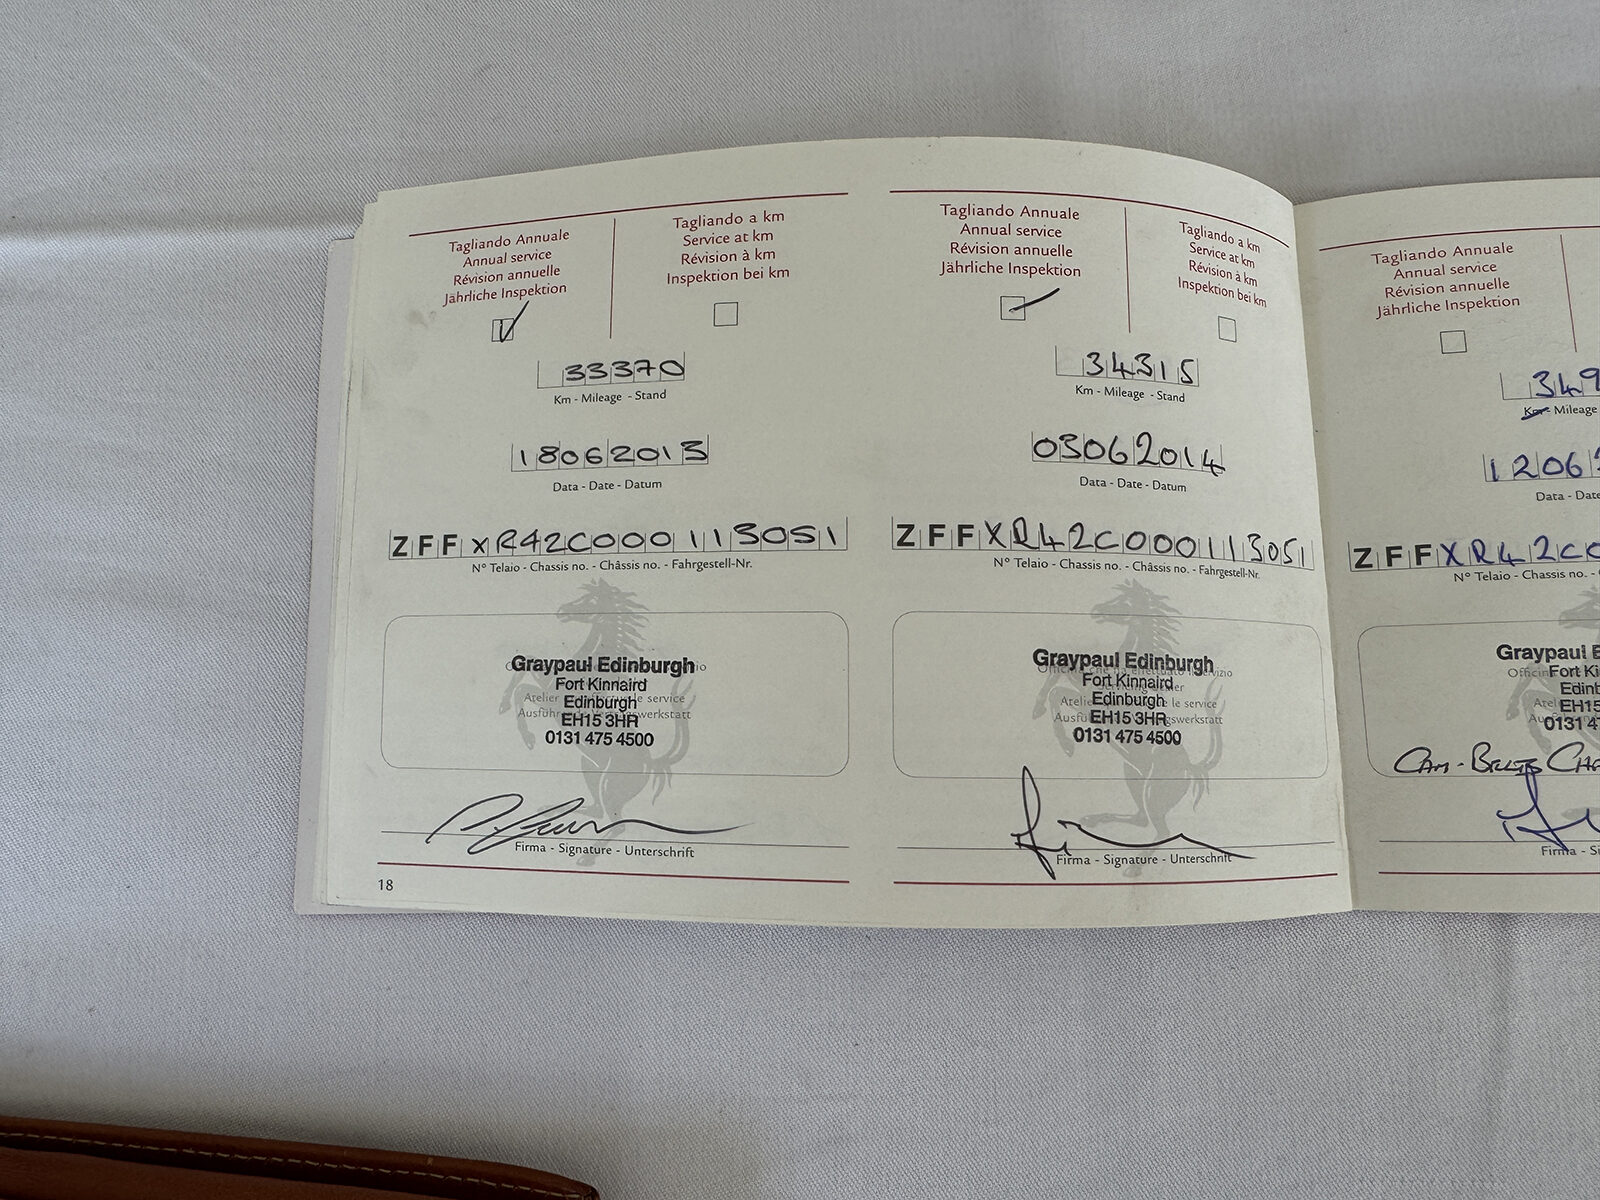 Tagliando Annuale
Annual service
Révision annuelle
Jährliche Inspektion
Tagliando a km
Service at km
Révision à km
Inspektion bei km
33370
Km - Mileage - Stand
18062013
Data - Date - Datum
ZFFXR42C000113051
N° Telaio - Chassis no. - Châssis no. - Fahrgestell-Nr.
Graypaul Edinburgh
Fort Kinnaird
Edinburgh
EH15 3HR
0131 475 4500
Atelier le service
Firma - Signature - Unterschrift
18
Tagliando Annuale
Annual service
Révision annuelle
Jährliche Inspektion
Tagliando a km
Service at km
Révision à km
Inspektion bei km
34315
Km - Mileage - Stand
03062014
Data - Date - Datum
ZFFXR42C000113051
N° Telaio - Chassis no. - Châssis no. - Fahrgestell-Nr.
Graypaul Edinburgh
Fort Kinnaird
Edinburgh
EH15 3HR
0131 475 4500
le service
Firma - Signature - Unterschrift
Tagliando Annuale
Annual service
Révision annuelle
Jährliche Inspektion
349
Km - Mileage
1206
Data - Date
ZFFXR42C0
N° Telaio - Chassis no. -
Graypaul E
Fort Ki
Edinb
EH15
0131 47
Firma - Si